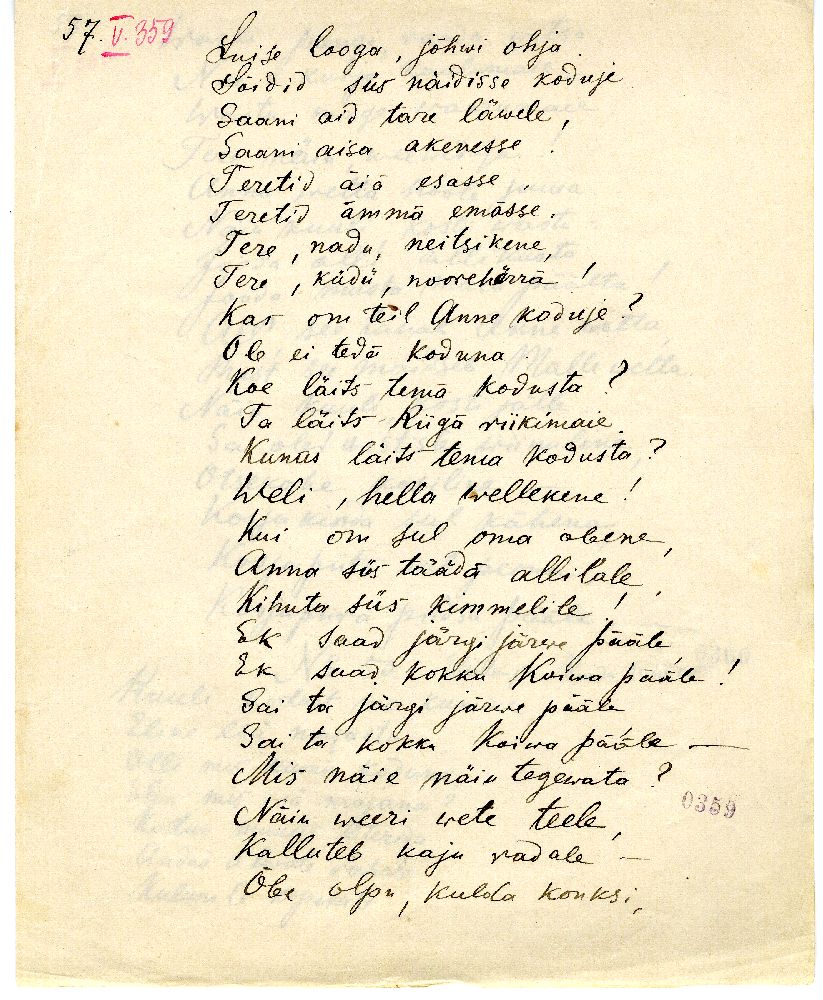 57. V. 359
Luise looga, jõhwi ohja.
Sõidid siis näidisse koduje
Saani aid tare läwele,
Saani aisa akenesse!
Teretid äiä esasse,
Teretid ämmä emässe.
Tere, nadu, neitsikene,
Tere, küdü, noorehärrä!
Kas om teil Anne koduje?
Ole ei tedä koduna.
Koe läits temä kodusta?
Ta läits Riigä riikimaie.
Kunas läits tema kodusta?
Weli, hella wellekene!
Kui om sul oma obene,
Anna siis täädä allilale,
Kihuta siis kimmelile!
Ek saad järgi järwe pääle,
Ek saad kokku Koiwa pääle!
Sai ta järgi järwe pääle
Sai ta kokku Koiwa pääle —
Mis näie näiu tegewata?
Näiu weeri wete teele,
Kalluteb kaju radale —
Õbe olpu, kulda konksi,
0359